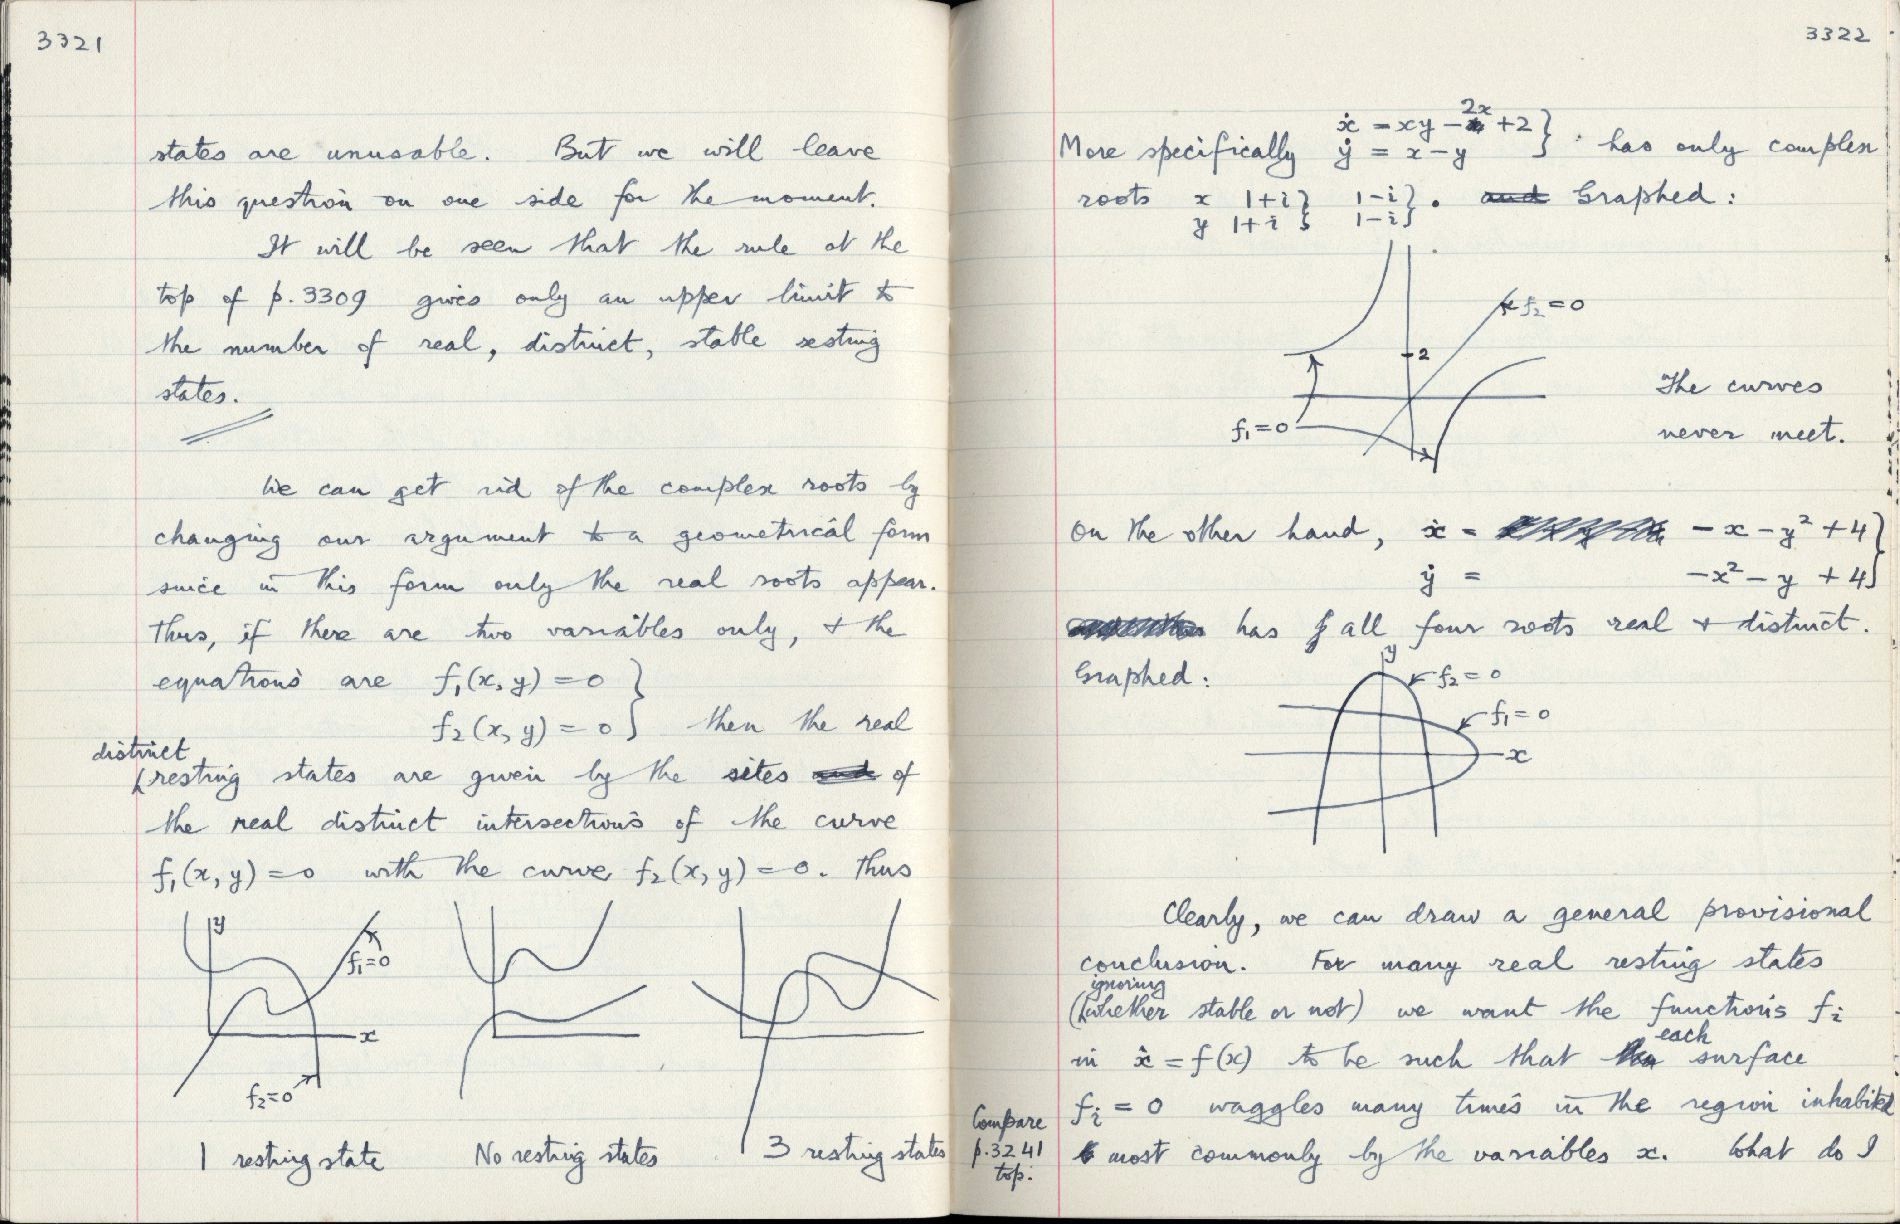 3321
states are unusable. But we will leave
this question on one side for the moment.
It will be seen that the rule at the
top of p.3309 gives only an upper limit to
the number of real, distinct, stable resting
states.
We can get rid of the complex roots by
changing our argument to a geometrical form
since in this form only the real roots appear.
Thus, if there are two variables only, & the
equations are f₁(x, y) = 0 }
f₂(x, y) = 0 } then the real
distinct
resting states are given by the sites and of
the real distinct intersections of the curve
f₁(x, y) = 0 with the curve f₂(x, y) = 0. Thus
y
f₁=0
x
f₂=0
1 resting state No resting states 3 resting states
3322
2x
More specifically ẋ = xy - x +2 } has only complex
ẏ = x - y
roots x 1+i } 1-i }. and Graphed:
y 1+i } 1-i }
f₂=0
2
f₁=0
The curves
never meet.
On the other hand, ẋ = -x - y² + 4 }
ẏ = -x² - y + 4 }
has all four roots real & distinct.
Graphed:
y
f₂=0
f₁=0
x
Clearly, we can draw a general provisional
conclusion. For many real resting states
ignoring
(whether stable or not) we want the functions fᵢ
each
in ẋ = f(x) to be such that the surface
fᵢ = 0 waggles many times in the region inhabited
most commonly by the variables x. What do I
Compare
p.3241
top.